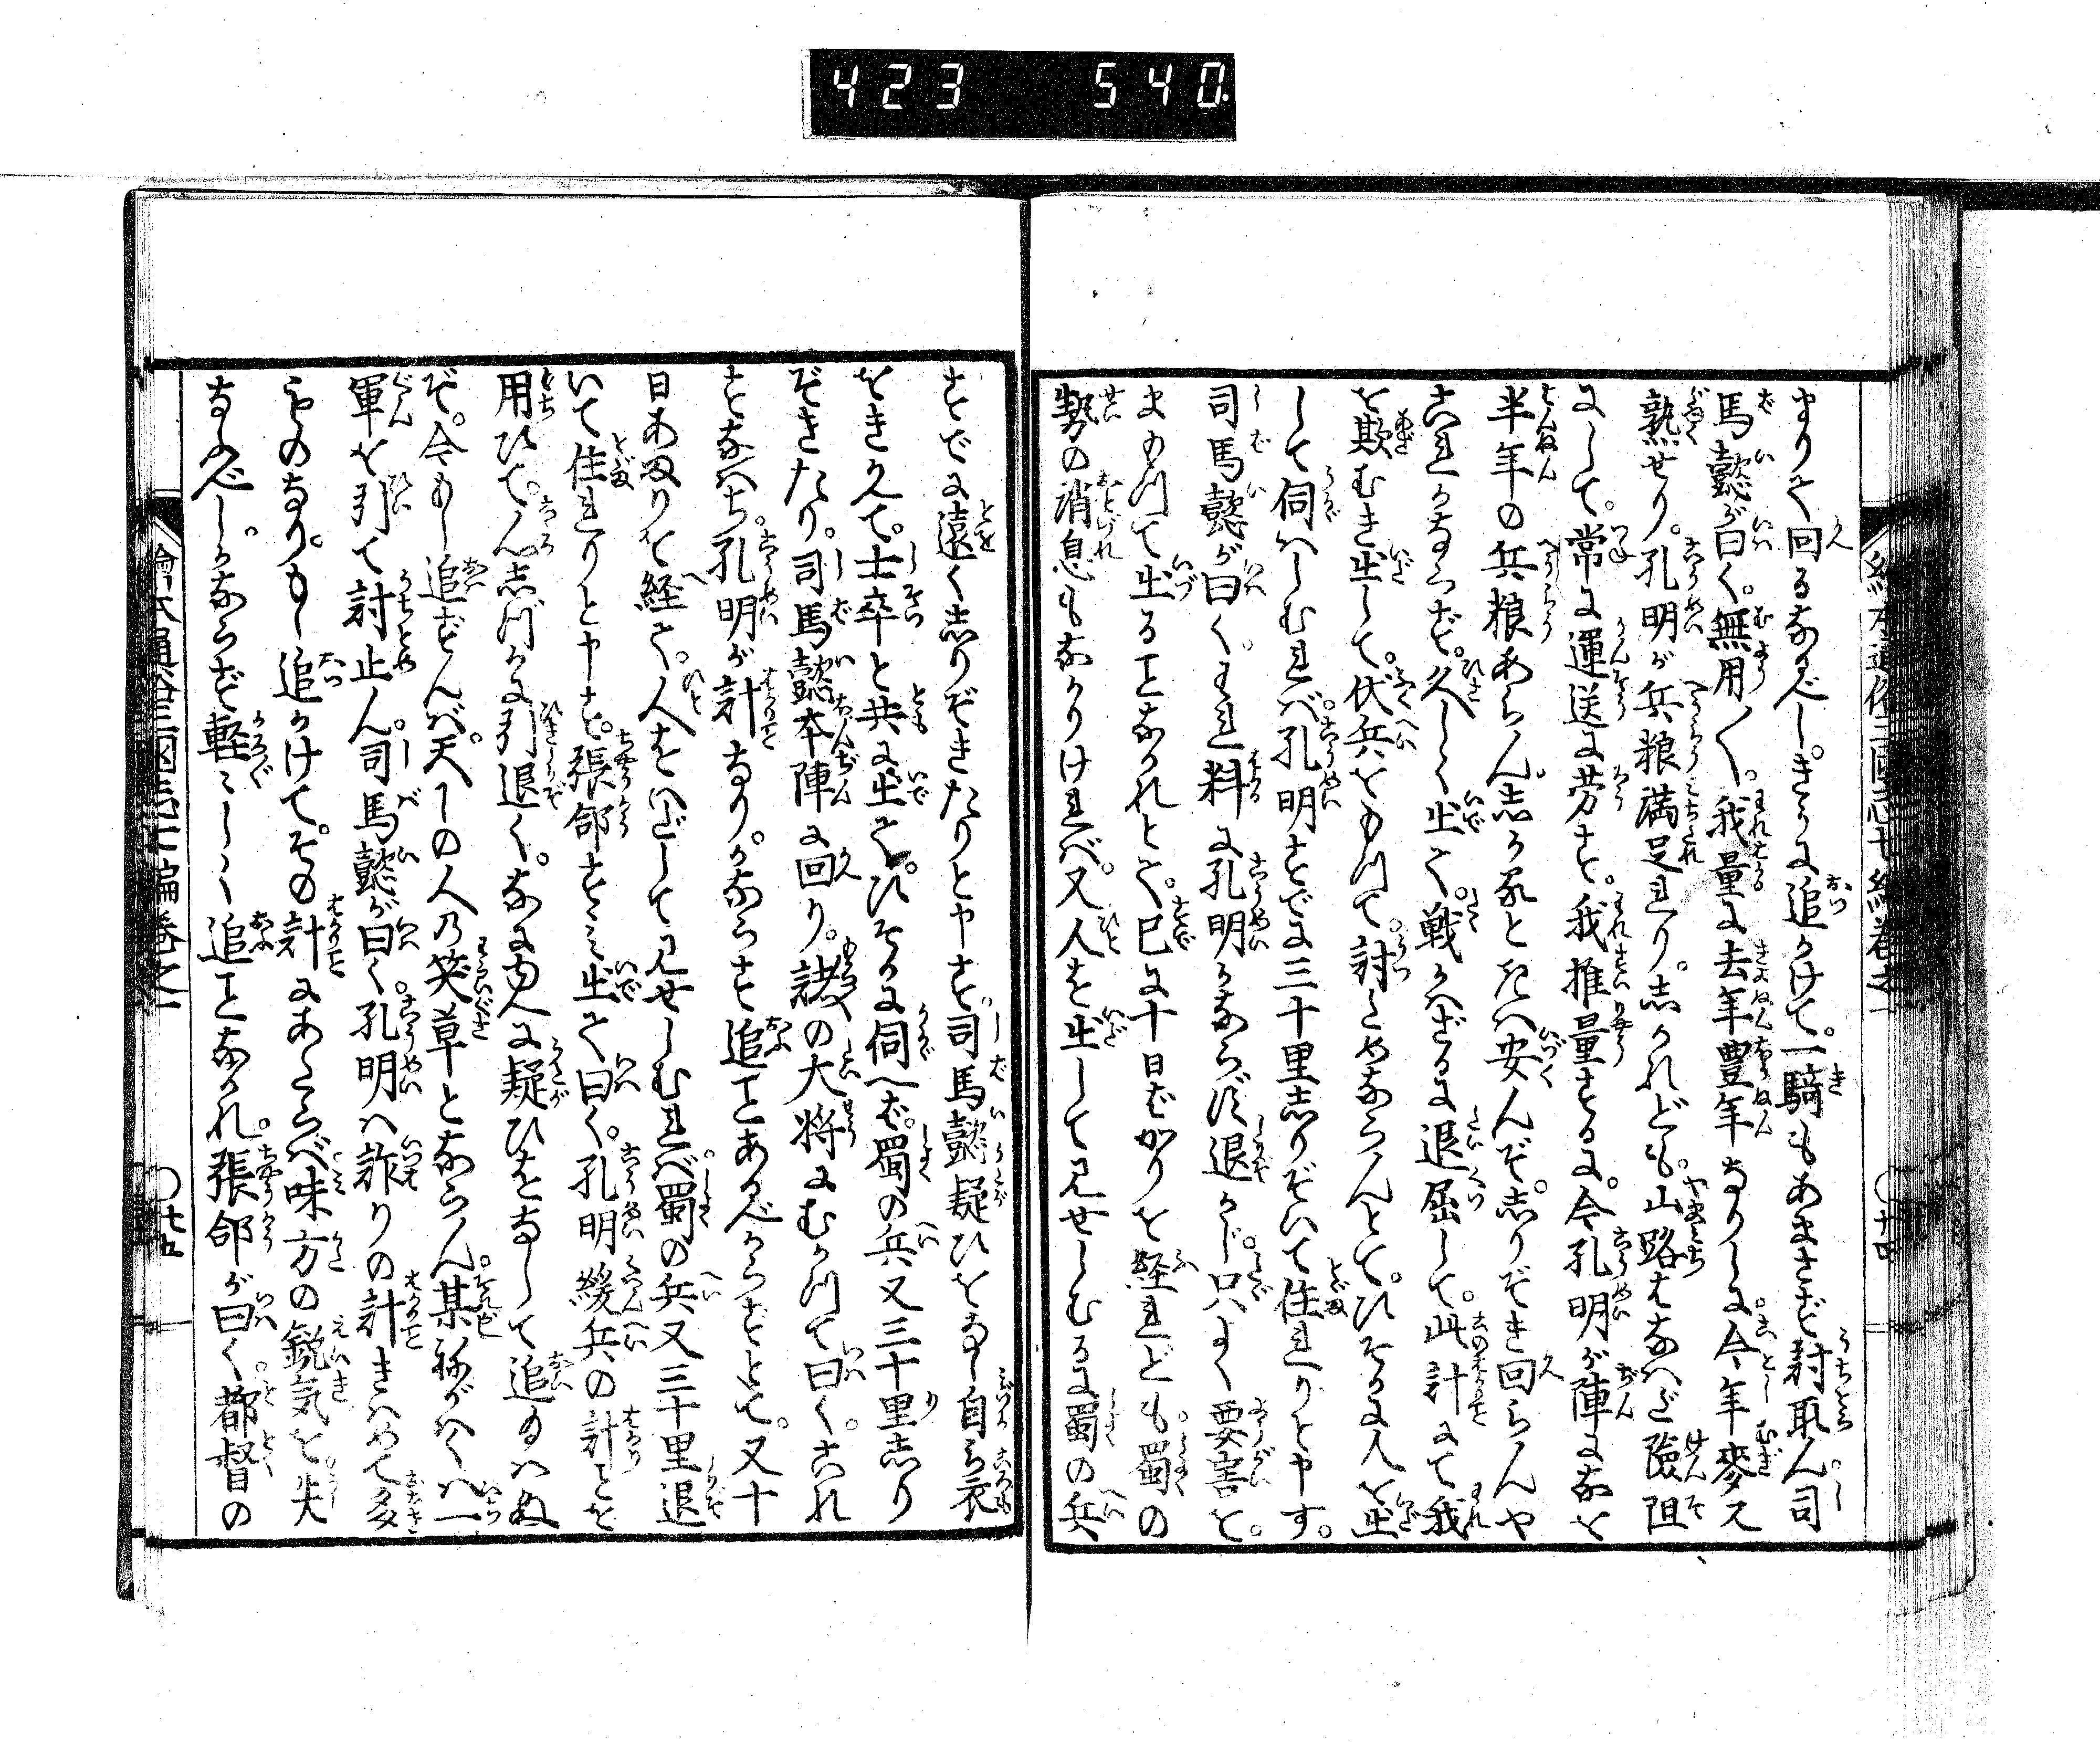 423 540
絵本通俗三國志七編巻之一
まりて回るなるべし。きうに追かけて。一騎もあまさず討取ん。司
馬懿が曰く。無用〱。我量に去年豊年なりしに。今年麥又
熟せり。孔明が兵粮満足れり。しかれども。山路はなはだ險阻
にして。常に運送に労す。我推量するに。今孔明が陣になを
半年の兵粮あらん。しかるときは安んぞ。しりぞき回らんや
これかならず。久しく出て。戦かはざるに退屈して。此計にて我
を欺むき出して。伏兵をもつて。討とめならんとて。ひそかに人を出
して伺はしむれば。孔明すでに三十里しりぞいて住れりと申す。
司馬懿が曰く。われ料に孔明かならず退かじ。只よく要害を。
まもつて出ることなかれとて。已に十日ばかりを経れども。蜀の
勢の消息もなかりければ。又人を出して見せしむるに蜀の兵
〇十四
すでに遠くしりぞきたりと申す。司馬懿疑ひをなし自ら衣
をきかへて。士卒と共に出て。ひそかに伺へば。蜀の兵又三十里しり
ぞきたり。司馬懿本陣に回り。諸の大将にむかつて曰く。これ
すなはち。孔明が計なり。かならず追ことあるべからずとて。又十
日あまりを経て。人をつかはして見せしむれば蜀の兵又三十里退
いて住れりと申す。張郃すゝみ出て曰く。孔明緩兵の計とを
用ひて。しづかに引退く。なに由に疑ひをなして追給はぬ
ぞ。今もし追ずんば。天下の人乃笑草とならん。某ねがはくは一
軍を引て討止ん。司馬懿が曰く。孔明は詐りの計きはめて多
きものなり。もし追かけて。その計にあたらば味方の鋭気を失
なふべし。かならず軽〻しく追ことなかれ。張郃が曰く。都督の
繪本通俗三國志七編巻之一
〇十五